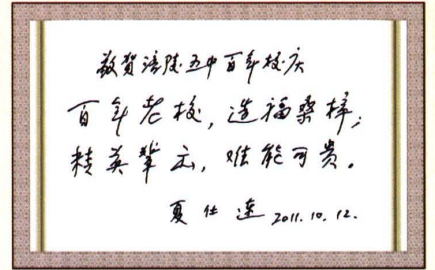 敬贺涪陵五中百年校庆
百年老校，造福桑梓；
精英辈出，难能可贵。
夏仕逵 2011.10.12.